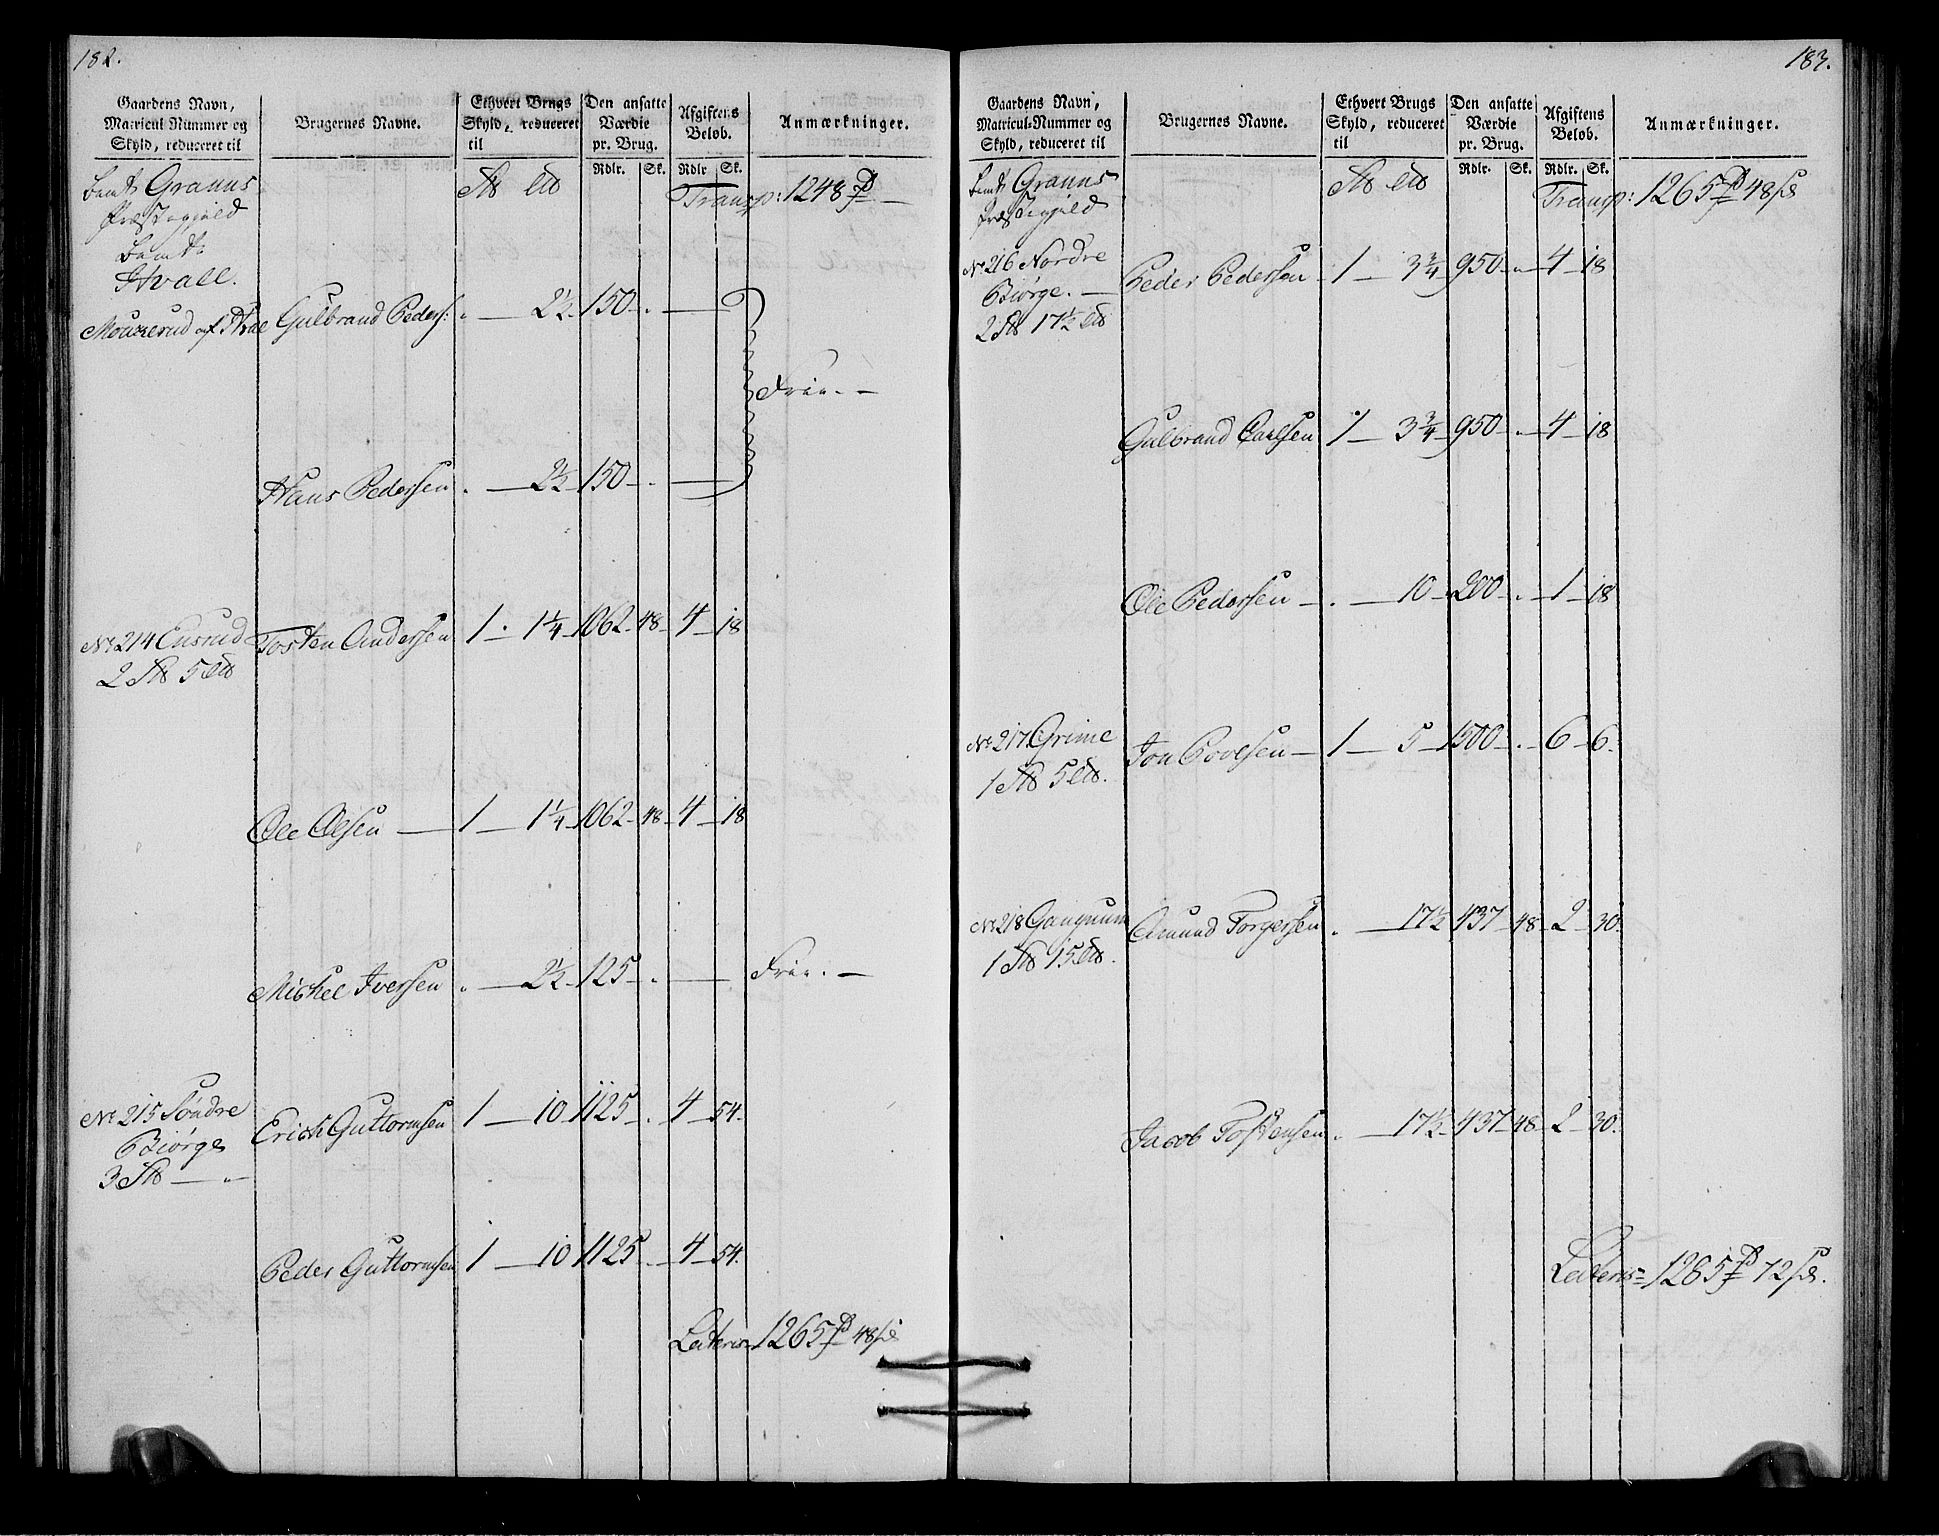 182.
Gaardens Navn, Matricul-Nummer og Skyld, reduceret til | Brugernes Navne. | Ethvert Brugs Skyld, reduceret til | Den ansatte Værdie pr. Brug. Rdlr. Sk. | Afgiftens Beløb. Rdlr Sk. | Anmærkninger.
Granns
Præstegield
Hvall.
Transp: 1248
af Hval Gulbrand Peders: " — 2½ 150 — . —
Frie. —
Hans Pedersen . — 2½ 150 — . —
No 214 Ensrud Tosten Andersen 1 . 1¼ 1062 48 4 18
2 5
Ole Olsen — 1 — 1¼ 1062 48 4 18
Michel Iversen " — 2½ 125 — . — Frie. —
No 215 Søndre Erich Guttormsen 1 — 10 1125 . 4 54.
Biørge
3 — "
Peder Guttormsen 1 — 10 1125 . 4 54.
Lateris 1265 48
183.
Gaardens Navn, Matricul-Nummer og Skyld, reduceret til | Brugernes Navne. | Ethvert Brugs Skyld, reduceret til | Den ansatte Værdie pr. Brug. Rdlr. Sk. | Afgiftens Beløb. Rdlr. Sk. | Anmærkninger.
Granns
Præstegield
Transp: 1265 48
No 216 Nordre Peder Pedersen 1 — 3¾ 950 . 4 18
Biørge. —
2 17½
Gulbrand Carlsen 1 — 3¾ 950 . 4 18
Ole Pedersen — . — 10 200 . 1 18
No 217 Grime Jon Povelsen — 1 — 5 1500 . 6 6.
1 5
No 218 Ganguum Amund Torgersen . — 17½ 437 48 2 30.
1 15
Jacob Tostensen . — 17½ 437 48 2 30.
Lateris 1285 72